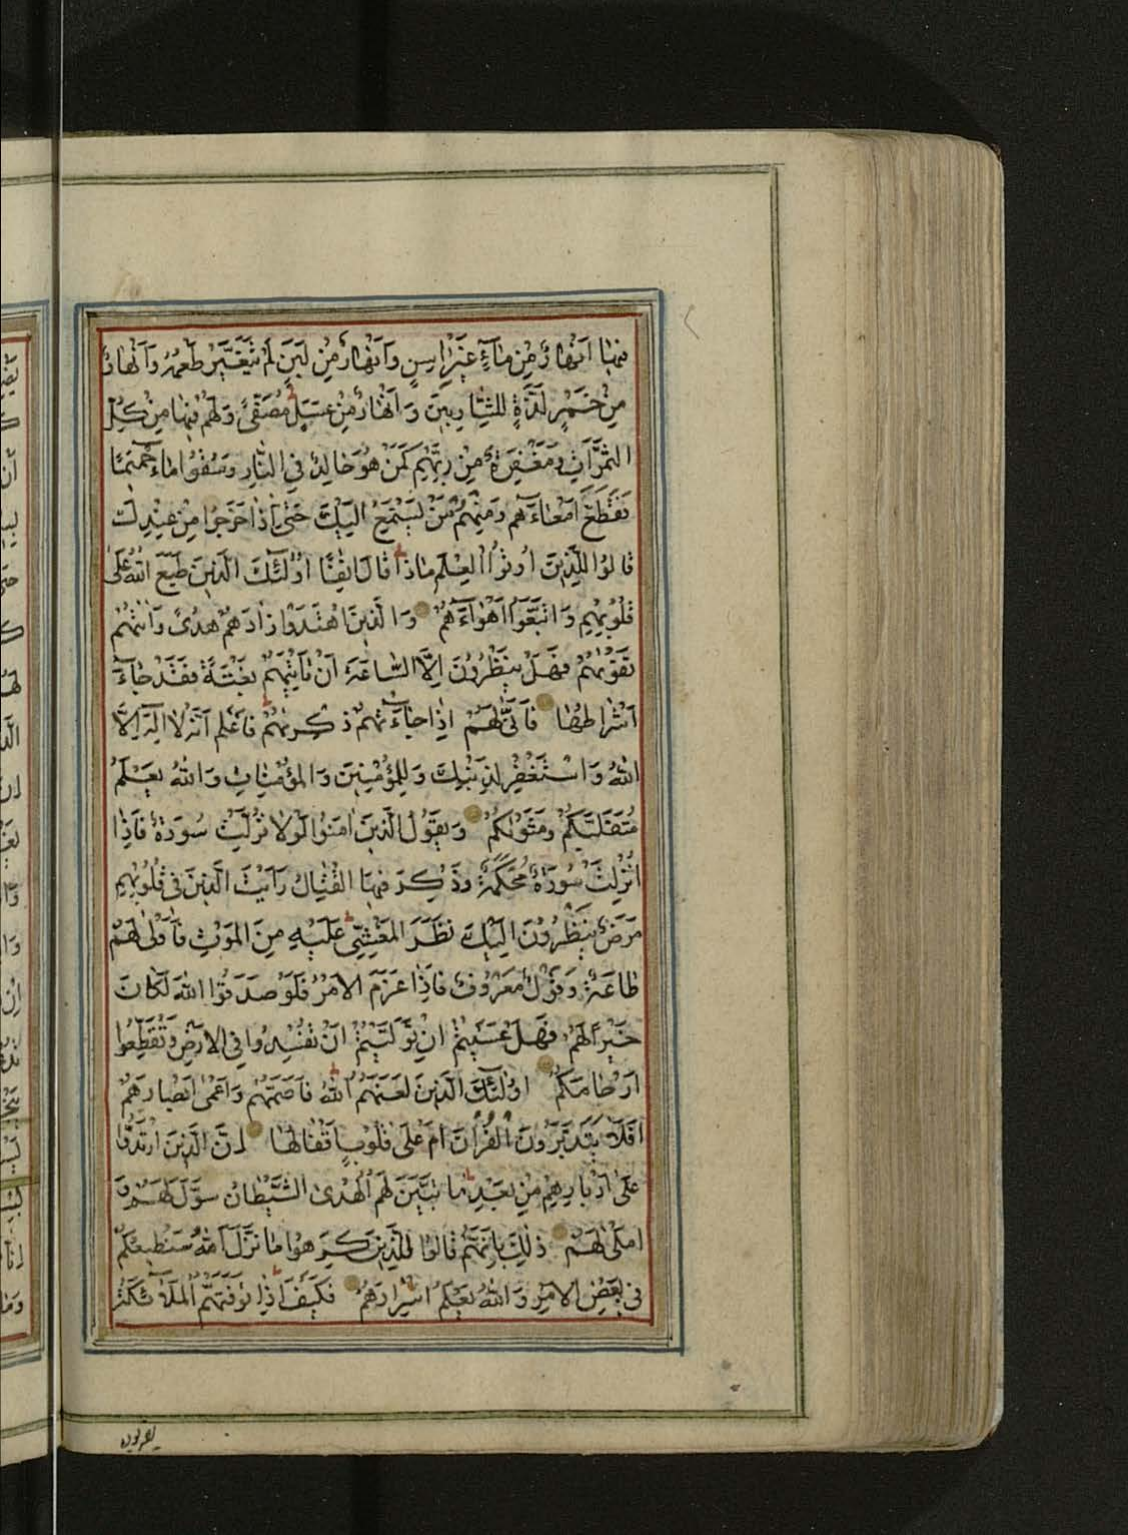 فِيهَا اَنْهَارٌ مِنْ مَآءٍ غَيْرِ اٰسِنٍ وَاَنْهَارٌ مِنْ لَبَنٍ لَمْ يَتَغَيَّرْ طَعْمُهُ وَاَنْهَارٌ
مِنْ خَمْرٍ لَذَّةٍ لِلشَّارِبِينَ وَاَنْهَارٌ مِنْ عَسَلٍ مُصَفًّى وَلَهُمْ فِيهَا مِنْ كُلِّ
الثَّمَرَاتِ وَمَغْفِرَةٌ مِنْ رَبِّهِمْ كَمَنْ هُوَ خَالِدٌ فِي النَّارِ وَسُقُوا مَاءً حَمِيمًا
فَقَطَّعَ اَمْعَاءَهُمْ وَمِنْهُمْ مَنْ يَسْتَمِعُ اِلَيْكَ حَتّٰى اِذَا خَرَجُوا مِنْ عِنْدِكَ
قَالُوا لِلَّذِينَ اُوتُوا الْعِلْمَ مَاذَا قَالَ اٰنِفًا اُولٰئِكَ الَّذِينَ طَبَعَ اللّٰهُ عَلٰى
قُلُوبِهِمْ وَاتَّبَعُوا اَهْوَاءَهُمْ وَالَّذِينَ اهْتَدَوْا زَادَهُمْ هُدًى وَاٰتٰيهُمْ
تَقْوٰيهُمْ فَهَلْ يَنْظُرُونَ اِلَّا السَّاعَةَ اَنْ تَأْتِيَهُمْ بَغْتَةً فَقَدْ جَاءَ
اَشْرَاطُهَا فَاَنّٰى لَهُمْ اِذَا جَاءَتْهُمْ ذِكْرٰيهُمْ فَاعْلَمْ اَنَّهُ لَا اِلٰهَ اِلَّا
اللّٰهُ وَاسْتَغْفِرْ لِذَنْبِكَ وَلِلْمُؤْمِنِينَ وَالْمُؤْمِنَاتِ وَاللّٰهُ يَعْلَمُ
مُتَقَلَّبَكُمْ وَمَثْوٰيكُمْ وَيَقُولُ الَّذِينَ اٰمَنُوا لَوْلَا نُزِّلَتْ سُورَةٌ فَاِذَا
اُنْزِلَتْ سُورَةٌ مُحْكَمَةٌ وَذُكِرَ فِيهَا الْقِتَالُ رَاَيْتَ الَّذِينَ فِي قُلُوبِهِمْ
مَرَضٌ يَنْظُرُونَ اِلَيْكَ نَظَرَ الْمَغْشِيِّ عَلَيْهِ مِنَ الْمَوْتِ فَاَوْلٰى لَهُمْ
طَاعَةٌ وَقَوْلٌ مَعْرُوفٌ فَاِذَا عَزَمَ الْاَمْرُ فَلَوْ صَدَقُوا اللّٰهَ لَكَانَ
خَيْرًا لَهُمْ فَهَلْ عَسَيْتُمْ اِنْ تَوَلَّيْتُمْ اَنْ تُفْسِدُوا فِي الْاَرْضِ وَتُقَطِّعُوا
اَرْحَامَكُمْ اُولٰئِكَ الَّذِينَ لَعَنَهُمُ اللّٰهُ فَاَصَمَّهُمْ وَاَعْمٰى اَبْصَارَهُمْ
اَفَلَا يَتَدَبَّرُونَ الْقُرْاٰنَ اَمْ عَلٰى قُلُوبٍ اَقْفَالُهَا اِنَّ الَّذِينَ ارْتَدُّوا
عَلٰى اَدْبَارِهِمْ مِنْ بَعْدِ مَا تَبَيَّنَ لَهُمُ الْهُدٰى الشَّيْطَانُ سَوَّلَ لَهُمْ وَ
اَمْلٰى لَهُمْ ذٰلِكَ بِاَنَّهُمْ قَالُوا لِلَّذِينَ كَرِهُوا مَا نَزَّلَ اللّٰهُ سَنُطِيعُكُمْ
فِي بَعْضِ الْاَمْرِ وَاللّٰهُ يَعْلَمُ اِسْرَارَهُمْ فَكَيْفَ اِذَا تَوَفَّتْهُمُ الْمَلٰئِكَةُ
يضربون